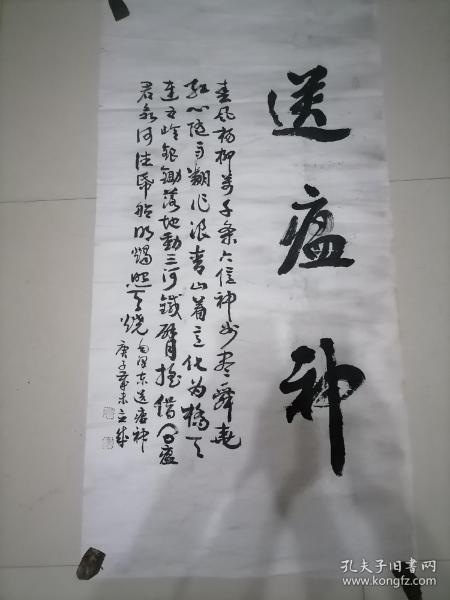 送瘟神
春风杨柳万千条六亿神州尽舜尧
红心随雨翻作浪青山着意化为桥天
连五岭银锄落地动三河铁臂摇借问瘟
君欲何往纸船明烛照天烧毛泽东送瘟神
庚子年末
孔夫子旧书网
www.kongfz.com